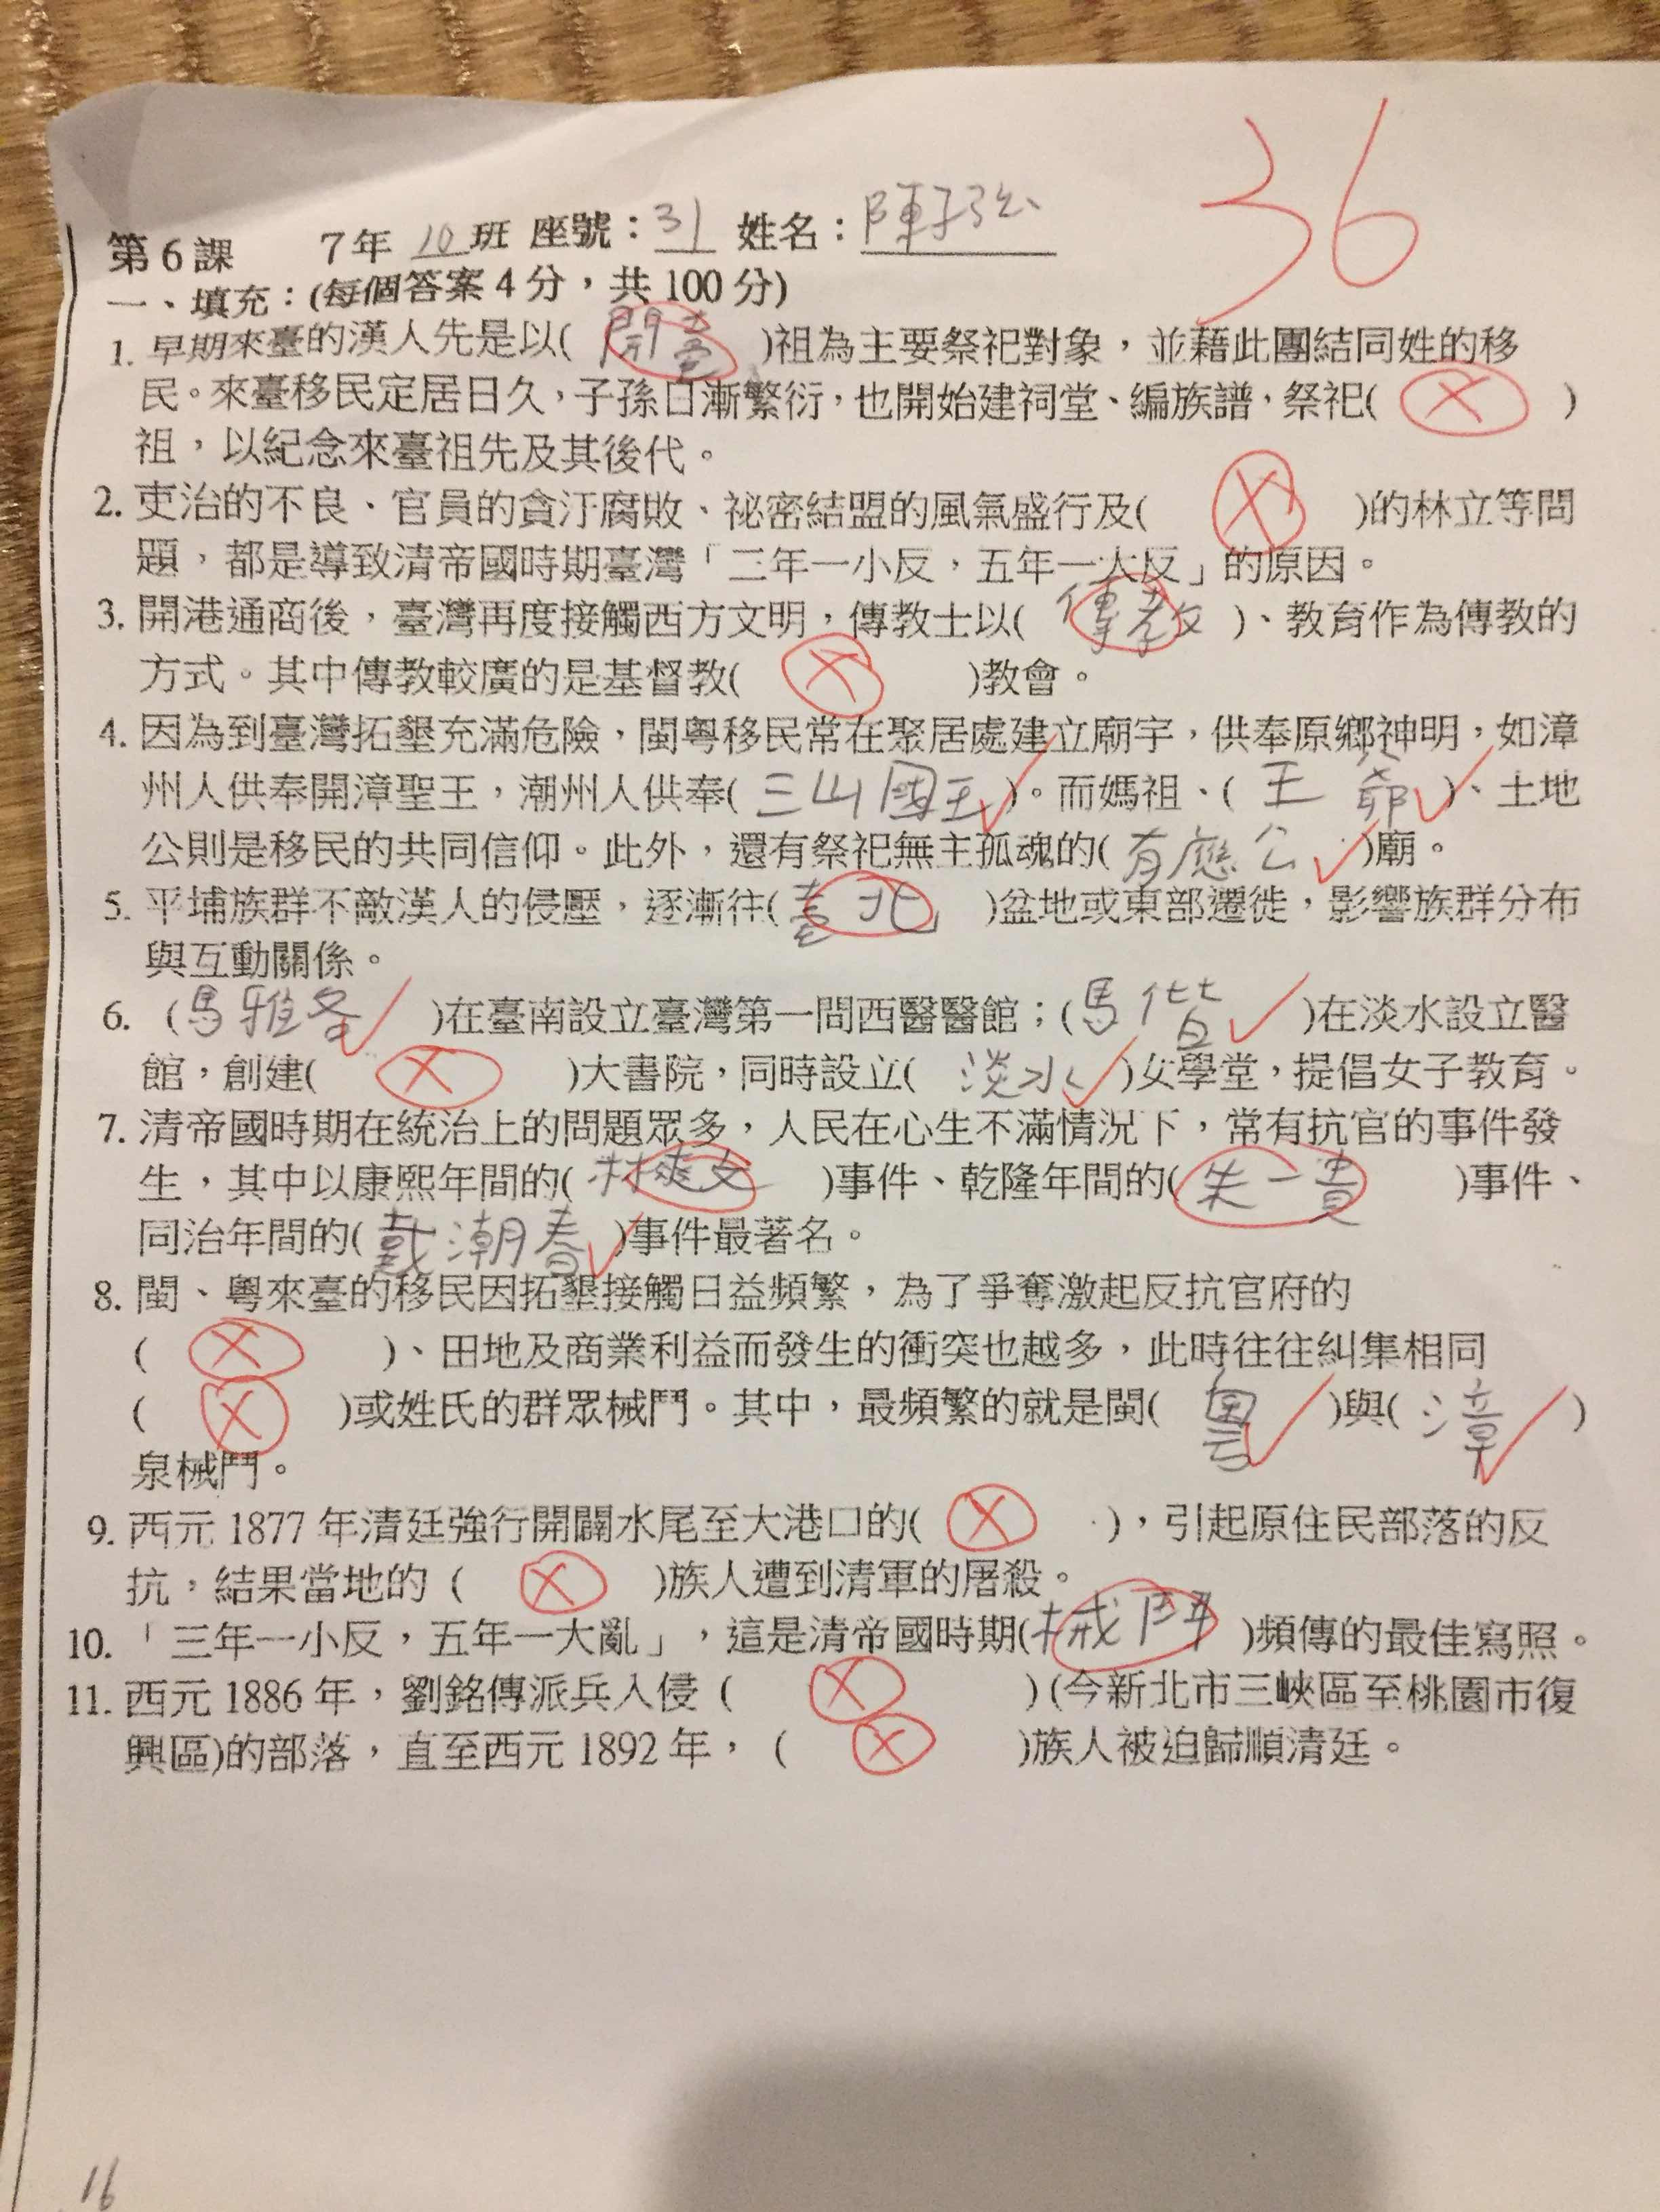 36
第6課 7年 10 班 座號：31 姓名：陳子弘
一、填充：(每個答案4分，共100分)
1. 早期來臺的漢人先是以( 開臺 )祖為主要祭祀對象，並藉此團結同姓的移
民。來臺移民定居日久，子孫日漸繁衍，也開始建祠堂、編族譜，祭祀( )
祖，以紀念來臺祖先及其後代。
2. 吏治的不良、官員的貪汙腐敗、祕密結盟的風氣盛行及( )的林立等問
題，都是導致清帝國時期臺灣「三年一小反，五年一大反」的原因。
3. 開港通商後，臺灣再度接觸西方文明，傳教士以( 傳教 )、教育作為傳教的
方式。其中傳教較廣的是基督教( )教會。
4. 因為到臺灣拓墾充滿危險，閩粵移民常在聚居處建立廟宇，供奉原鄉神明，如漳
州人供奉開漳聖王，潮州人供奉( 三山國王 )。而媽祖、( 王爺 )、土地
公則是移民的共同信仰。此外，還有祭祀無主孤魂的( 有應公 )廟。
5. 平埔族群不敵漢人的侵壓，逐漸往( 臺北 )盆地或東部遷徙，影響族群分布
與互動關係。
6. (馬雅各 )在臺南設立臺灣第一間西醫醫館；(馬偕 )在淡水設立醫
館，創建( )大書院，同時設立( 淡水 )女學堂，提倡女子教育。
7. 清帝國時期在統治上的問題眾多，人民在心生不滿情況下，常有抗官的事件發
生，其中以康熙年間的( 林爽文 )事件、乾隆年間的( 朱一貴 )事件、
同治年間的( 戴潮春 )事件最著名。
8. 閩、粵來臺的移民因拓墾接觸日益頻繁，為了爭奪激起反抗官府的
( )、田地及商業利益而發生的衝突也越多，此時往往糾集相同
( )或姓氏的群眾械鬥。其中，最頻繁的就是閩( 粵 )與( 漳 )
泉械鬥。
9. 西元1877年清廷強行開闢水尾至大港口的( )，引起原住民部落的反
抗，結果當地的 ( )族人遭到清軍的屠殺。
10. 「三年一小反，五年一大亂」，這是清帝國時期( 械鬥 )頻傳的最佳寫照。
11. 西元1886年，劉銘傳派兵入侵 ( ) (今新北市三峽區至桃園市復
興區)的部落，直至西元1892年， ( )族人被迫歸順清廷。
16